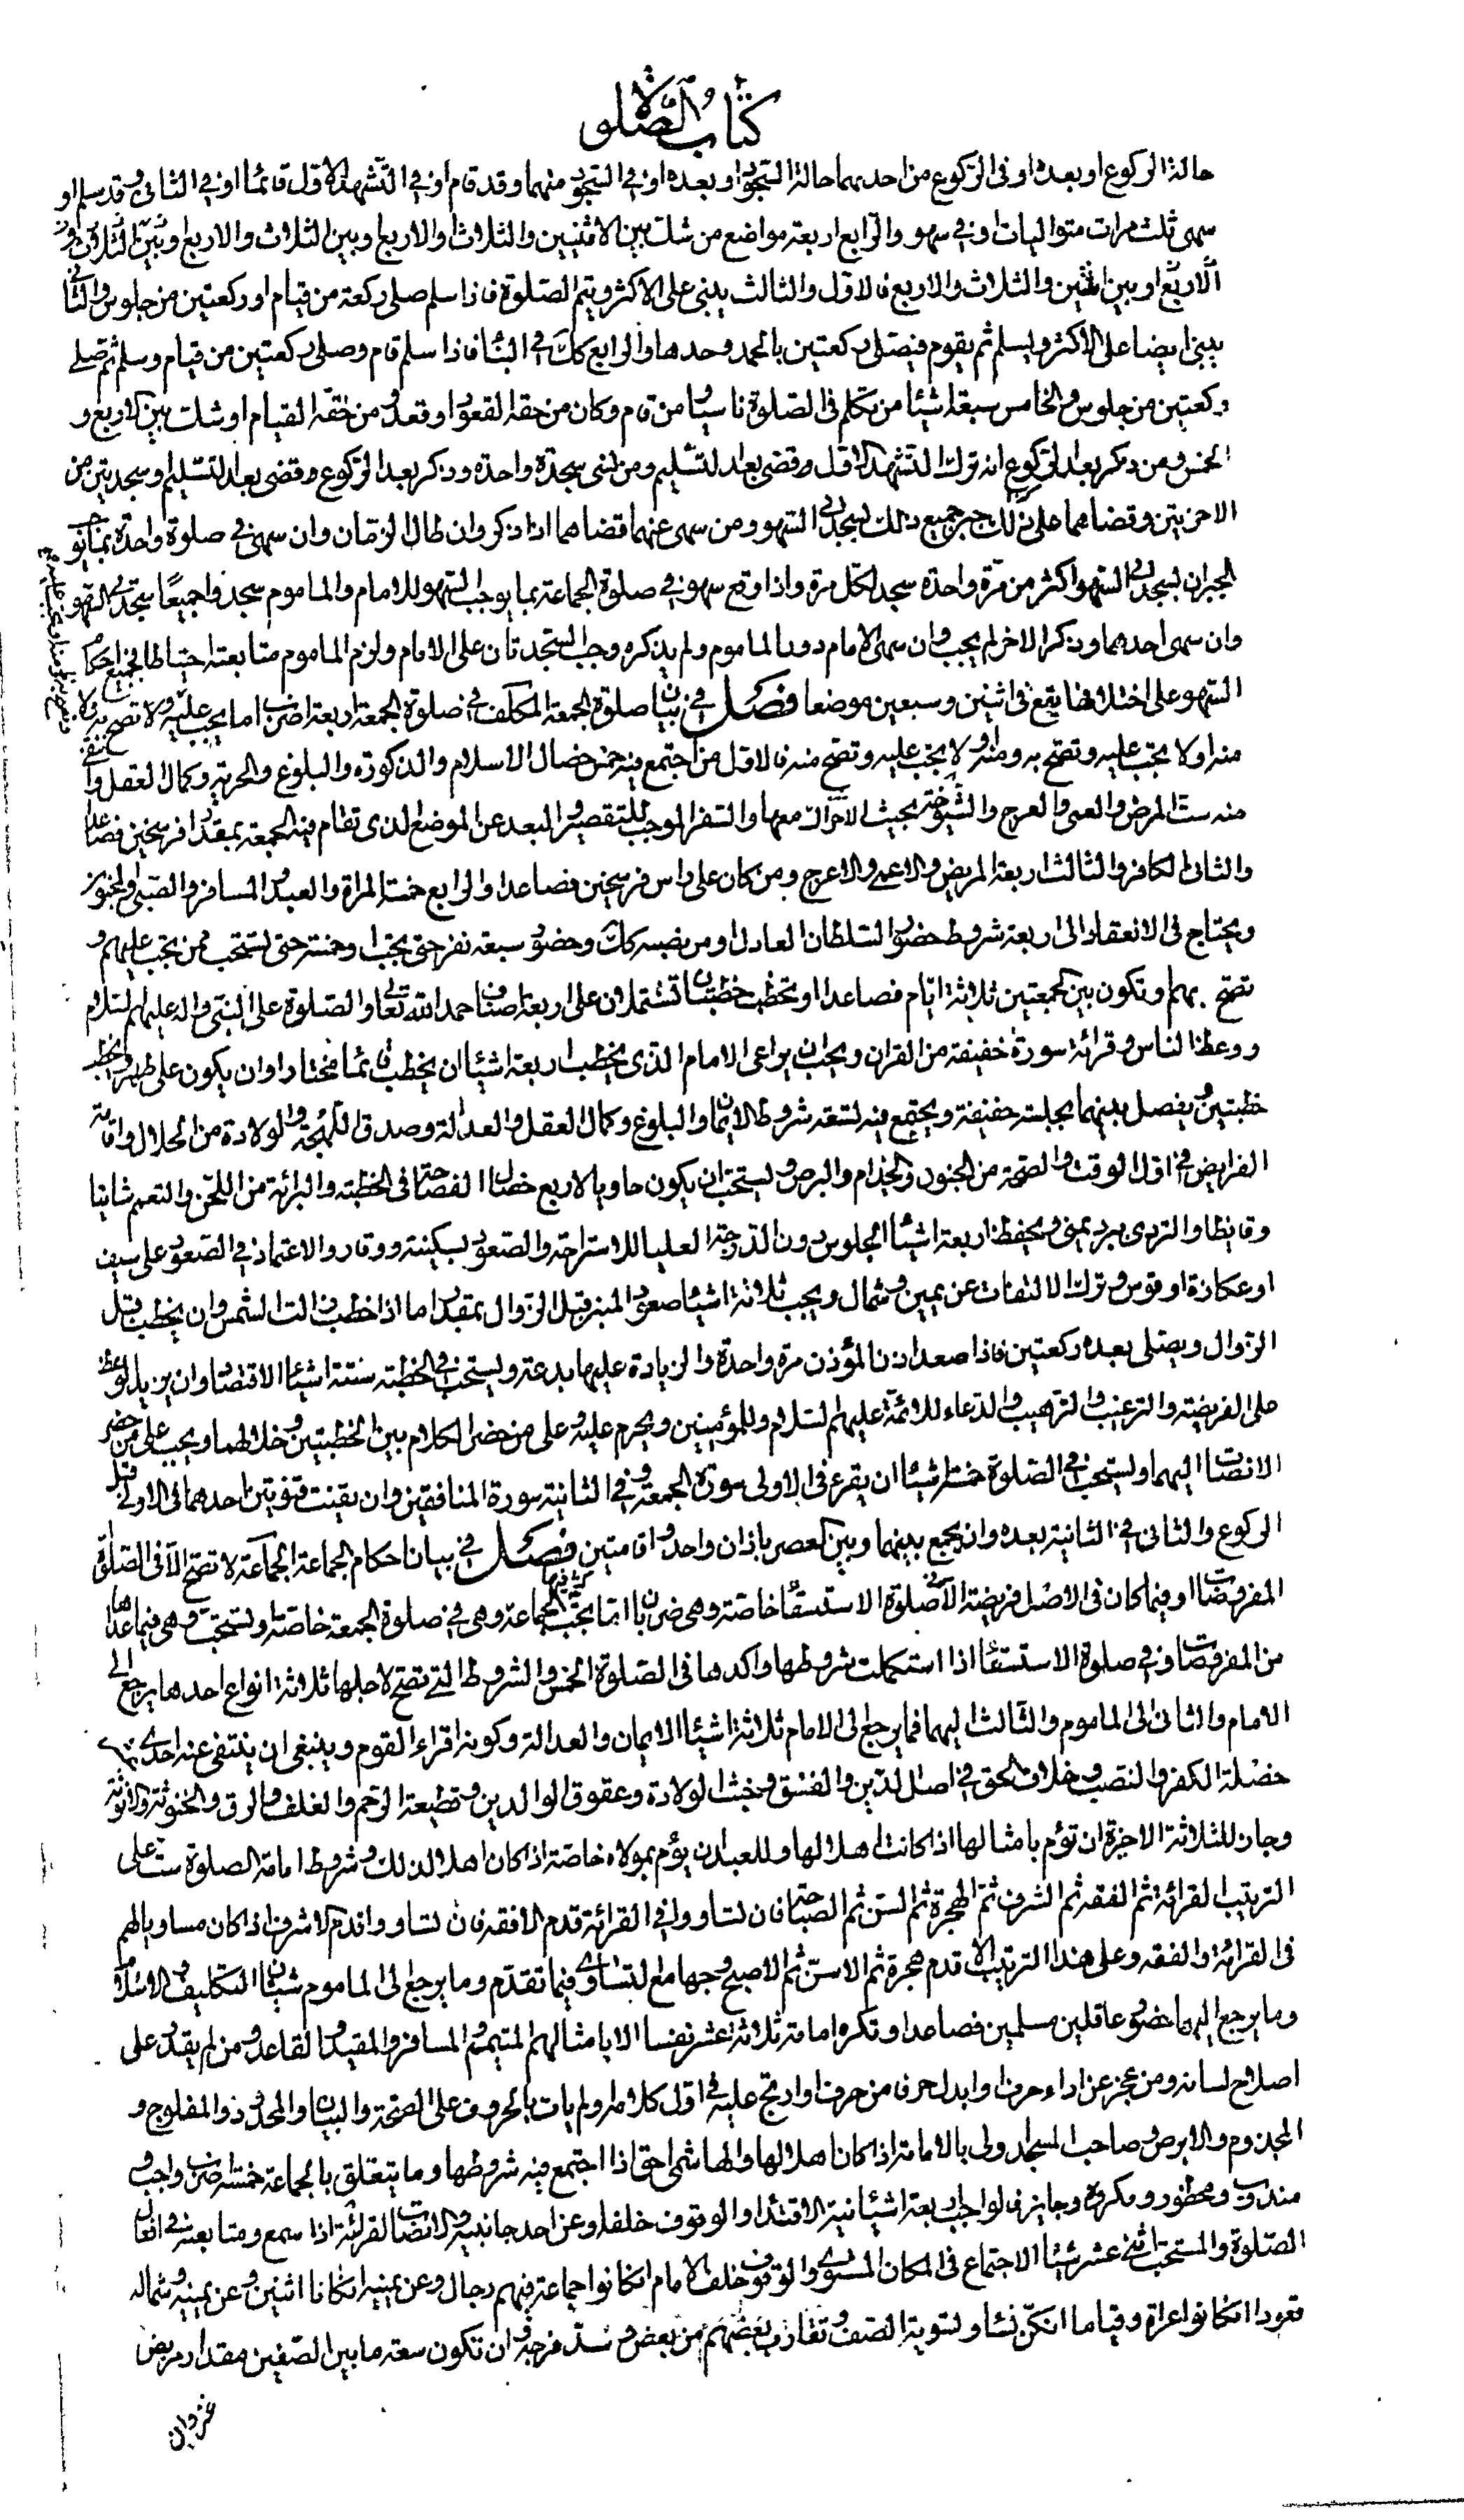 كتاب الصلوة
حالة الركوع او بعده او فى الركوع من احديهما حالة السجود او بعده او فى السجود منهما وقد قام او فى التشهد الاول قائما او فى الثانى وقد سلم او
سهى ثلث مرات متواليات او فى سهو والرابع اربعة مواضع من شك بين الاثنين والثلاث والاربع او بين الثلاث والاربع او بين الثلاث و
الاربع او بين اثنين والثلاث والاربع فالاول والثالث يبنى على الاكثر ويتم الصلوة فاذا سلم صلى ركعة من قيام او ركعتين من جلوس والثانى
يبنى ايضا على الاكثر ويسلم ثم يقوم فيصلى ركعتين بالحمد وحدها والرابع كك فى البناء فاذا سلم قام وصلى ركعتين من قيام وسلم ثم تصلى
ركعتين من جلوس والخامس سبعة اشياء من تكلم فى الصلوة ناسيا ومن قام وكان من حقه القعود او قعد ومن حقه القيام او شك بين الاربع و
الخمس ومن ذكر بعد الركوع انه ترك التشهد الاول وقضى بعد التسليم ومن نسى سجدة واحدة وذكر بعد الركوع وقضى بعد التسليم او سجدتين من
الاخريتين وقضاهما على ذلك جبر جميع ذلك بسجدتى السهو ومن سهى عنهما قضاهما اذا ذكر وان طال الزمان وان سهى فى صلوة واحدة بما يوجب
الجبران بسجدتى السهو اكثر من مرة واحدة سجد لكل مرة واذا وقع سهو فى صلوة الجماعة بما يوجب السهو للامام والماموم سجدوا جميعًا سجدتى السهو
وان سهى احدهما وذكر الاخر لم يجب وان سهى الامام دون الماموم ولم يذكره وجب السجدتان على الامام ولزم الماموم متابعته احتياطا فجميع احكام
السهو على اختلافها يقع فى اثنين وسبعين موضعا فصل فى بيان صلوة الجمعة المكلف فى صلوة الجمعة اربعة اضرب اما يجب عليه ولا تصح به ولا
منه او لا يجب عليه وتصح به ومنه او لا يجب عليه وتصح منه فالاول من اجتمع فيه خمس خصال الاسلام والذكورة والبلوغ والحرية وكمال العقل وانتفى
منه ست المرض والعمى والعرج والشيخوخة بحيث لا حراك معها والسفر الموجب للتقصير والبعد عن الموضع الذى تقام فيه الجمعة بمقدار فرسخين فصاعدا
والثانى الكافر والثالث اربعة المريض والاعمى والاعرج ومن كان على راس فرسخين فصاعدا والرابع خمسة المراة والعبد والمسافر والصبى والمجنون
ويحتاج فى الانعقاد الى اربعة شروط حضور السلطان العادل او من نصبه كك وحضور سبعة نفر حتى يجب او خمسة حتى تستحب ممن يجب عليهم و
تصح بهم او تكون بين الجمعتين ثلاثة اميال فصاعدا او يخطب خطبتان تشتملان على اربعة اصناف حمد الله تعالى والصلوة على النبى واله عليهم السلام
ووعظ الناس وقرائة سورة خفيفة من القران ويجب ان يراعى الامام الذى يخطب اربعة اشياء ان يخطب قائما مختارا وان يكون على طهر ويخطب
خطبتين ويفصل بينهما بجلسة خفيفة ويجتمع فيه تسعة شروط الايمان والبلوغ وكمال العقل والعدالة وصدق اللهجة والولادة من الحلال واقامة
الفرايض فى اول الوقت والصحة من الجنون والجذام والبرص ويستحب ان يكون حاويا لاربع خصال الفصاحة فى الخطبة والبرائة من اللحن والتعمم شاتيا
وقايظا والتردى ببرد يمنى ويحفظ اربعة اشياء الجلوس دون الدرجة العليا للاستراحة والصعود بسكينة ووقار والاعتماد فى الصعود على سيف
او عكازة او قوس وترك الالتفات عن يمين وشمال ويجب ثلاثة اشياء صعود المنبر قبل الزوال بمقدار ما اذا خطب زالت الشمس وان يخطب قبل
الزوال ويصلى بعده ركعتين فاذا صعد اذن المؤذن مرة واحدة والزيادة عليها بدعة ويستحب فى الخطبة ستة اشياء الاقتصار وان يزيد الوعظ
على الفريضة والترغيب والترهيب والدعاء للائمة عليهم السلام وللمؤمنين ويحرم عليه وعلى من حضر الكلام بين الخطبتين وخلالهما ويجب على من حضر
الانصات اليهما ويستحب فى الصلوة خمسة اشياء ان يقرء فى الاولى سورة الجمعة وفى الثانية سورة المنافقين وان يقنت قنوتين احدهما فى الاولى قبل
الركوع والثانى فى الثانية بعده وان يجمع بينهما وبين العصر باذان واحد واقامتين فصل فى بيان احكام الجماعة الجماعة لا تصح الا فى الصلوة
المفروضات او فيما كان فى الاصل فريضة الا صلوة الاستسقاء خاصة وهى ضربان اما يجب فيها الجماعة وهى فى صلوة الجمعة خاصة او تستحب وهى فيما عداها
من المفروضات وفى صلوة الاستسقاء اذا استكملت شروطها واكدها فى الصلوة الخمس والشروط التى تصح لاجلها ثلاثة انواع احدها يرجع الى
الامام والثانى الى الماموم والثالث اليهما فما يرجع الى الامام ثلاثة اشياء الايمان والعدالة وكونه اقراء القوم وينبغى ان ينتفى عنه احدى عشرة
خصلة الكفر والنصب وخلاف الحق فى اصل الدين والفسق وخبث الولادة وعقوق الوالدين وقطيعة الرحم والغلف والرق والخنوثة والانوثة
وجاز للثلاثة الاخيرة ان تؤم بامثالها اذا كانت اهلا لها وللعبد ان يؤم بمولاه خاصة اذا كان اهلا لذلك وشروط امامة الصلوة ست على
الترتيب القرائة ثم الفقه ثم الشرف ثم الهجرة ثم السن ثم الصباحة فان تساووا فى القرائة قدم الافقه فان تساووا قدم الاشرف اذا كان مساويا لهم
فى القرائة والفقه وعلى هذا الترتيب الاقدم هجرة ثم الاسن ثم الاصبح وجها مع التساوى فيما تقدم وما يرجع الى الماموم شيئان التكليف والاسلام
وما يرجع اليهما حضور عاقلين مسلمين فصاعدا وتكره امامة ثلاثة عشر نفسا الا بامثالهم المتيمم والمسافر والمقيد والقاعد ومن لم يقدر على
اصلاح لسانه ومن عجز عن اداء حرف او ابدل حرفا من حرف او ارتج عليه فى اول كلامه ولم يات بالحروف على الصحة والبيان والمحدود والمفلوج و
المجذوم والابرص وصاحب المسجد اولى بالامامة اذا كان اهلا لها والهاشمى احق اذا اجتمع فيه شروطها وما يتعلق بالجماعة خمسة اضرب واجب و
مندوب ومحظور ومكروه وجايز فالواجب اربعة اشياء نية الاقتداء والوقوف خلفه او عن احد جانبيه والانصات لقرائته اذا سمع ومتابعته فى افعال
الصلوة والمستحب اثنى عشر شيئا الاجتماع فى المكان المستوى والوقوف خلف الامام ان كانوا جماعة فيهم رجال وعن يمينه ان كانا اثنين وعن يمينه وشماله
قعودا ان كانوا عراة وقياما ان كن نساء وتسوية الصف وتقارب بعضهم من بعض وسد فرجه وان تكون سعة ما بين الصفين مقدار مربض